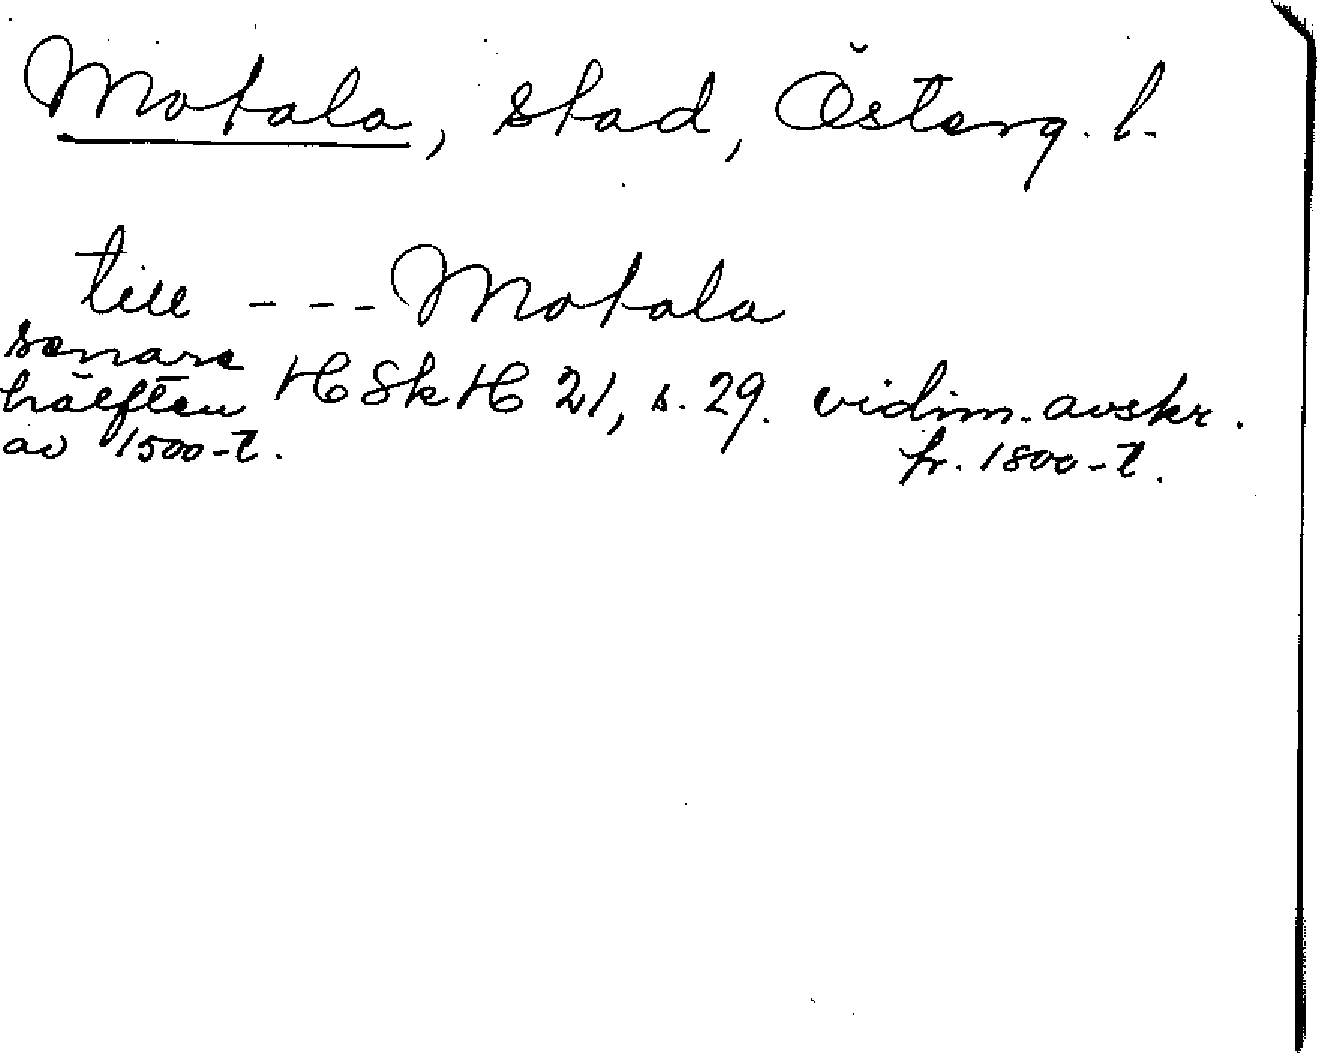 Motala, stad, Österg. l.
till --- Motala
senare
hälften HSkH 21, s. 29. vidim. avskr.
av 1500-t. fr. 1800-t.